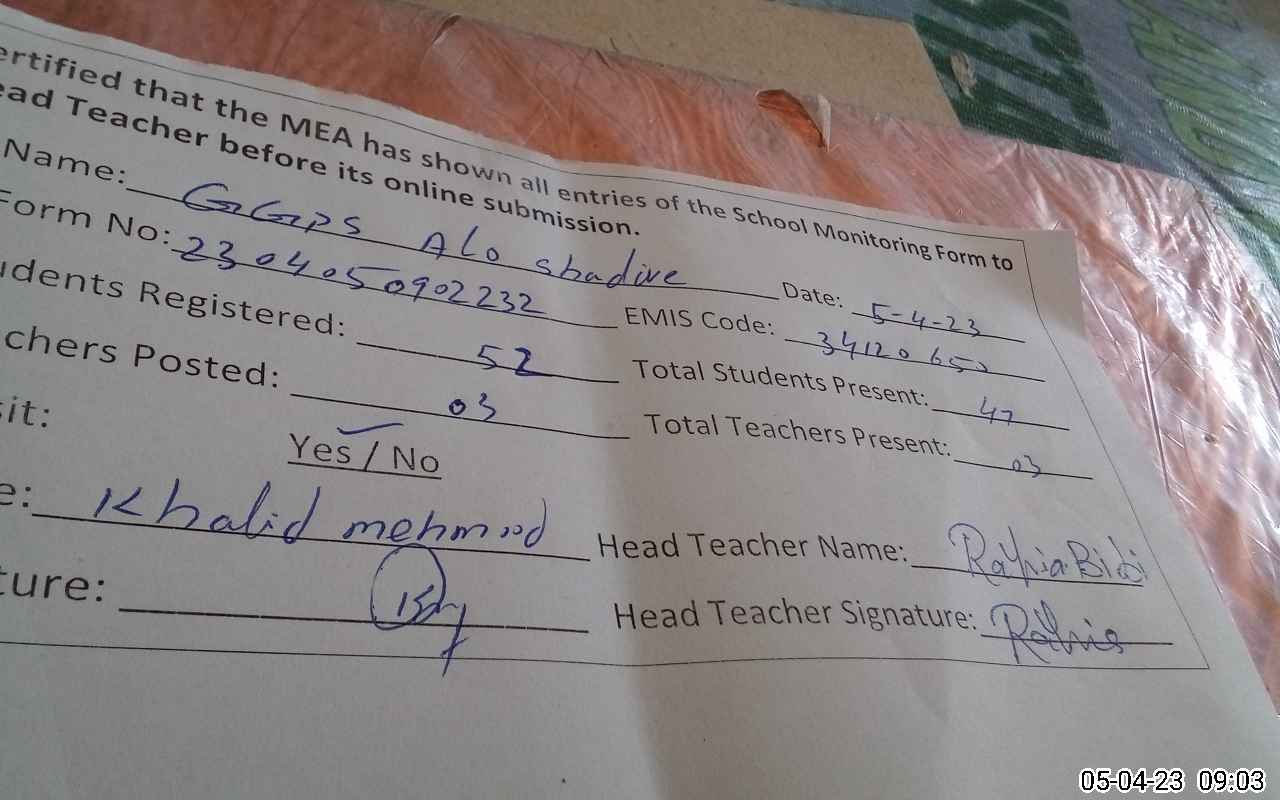 ertified that the MEA has shown all entries of the School Monitoring Form to
ead Teacher before its online submission.
Name: GGPS Alo shadive Date: 5-4-23
Form No: 2304050902232 EMIS Code: 34120650
udents Registered: 52 Total Students Present: 47
chers Posted: 03 Total Teachers Present: 03
sit: Yes / No
e: Khalid mehmood Head Teacher Name: Bibi
ture: Head Teacher Signature:
05-04-23 09:03